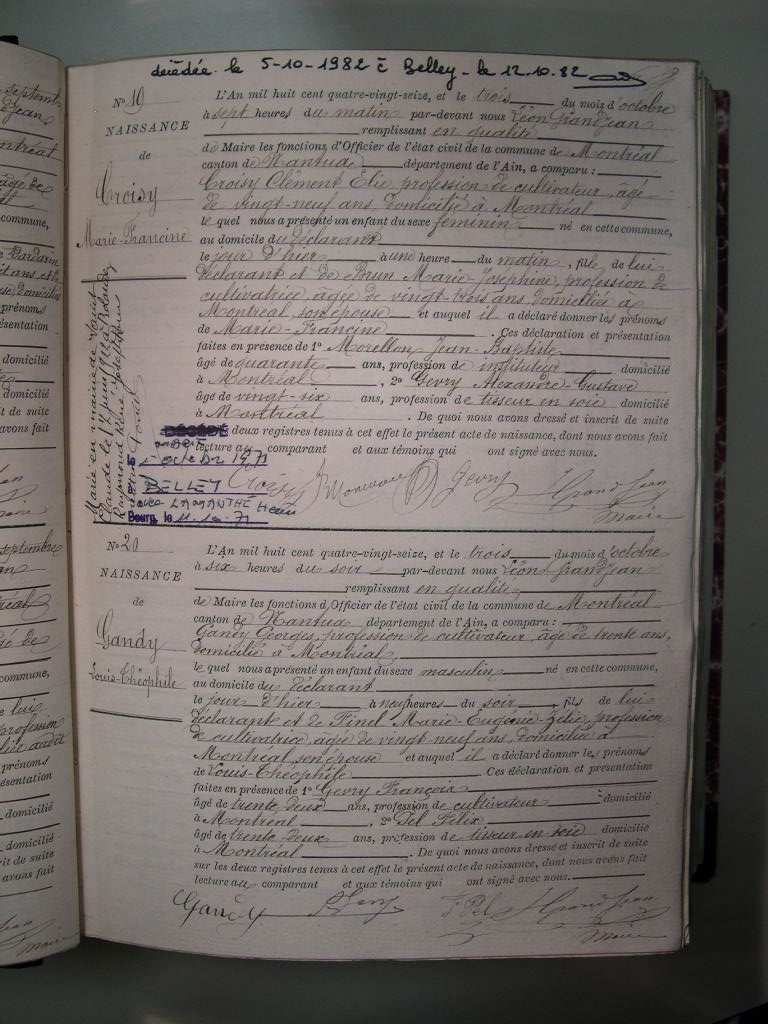 décédée le 5-10-1982 à Belley - le 12.10.82
N° 19
NAISSANCE
de
Croisy
Marie-Francine
L'An mil huit cent quatre-vingt-seize, et le trois du mois d'octobre
à sept heures du matin par-devant nous Léon Grandjean
remplissant en qualité
de Maire les fonctions d'Officier de l'état civil de la commune de Montréal
canton de Nantua département de l'Ain, a comparu :
Croisy Clément Élie, profession de cultivateur, âgé
de vingt-neuf ans domicilié à Montréal
le quel nous a présenté un enfant du sexe féminin né en cette commune,
au domicile du déclarant
le jour d'hier à une heure du matin, fille de lui
déclarant et de Brun Marie-Josephine, profession de
cultivatrice, âgée de vingt-trois ans domiciliée à
Montréal, son épouse et auquel il a déclaré donner les prénoms
de Marie-Francine. Ces déclaration et présentation
faites en présence de 1° Morellon Jean-Baptiste
âgé de quarante ans, profession de instituteur domicilié
à Montréal, 2° Gevry Alexandre-Gustave
âgé de vingt-six ans, profession de tisseur en soie domicilié
à Montréal. De quoi nous avons dressé et inscrit de suite
deux registres tenus à cet effet le présent acte de naissance, dont nous avons fait
lecture au comparant et aux témoins qui ont signé avec nous.
Marié en mairie de
DÉCÉDÉ
le 2 octobre 1971
à BELLEY
Bourg, le 11-10-71
Croisy Gevry L Grand Jean
maire
N° 20
NAISSANCE
de
Gandy
Louis-Théophile
L'An mil huit cent quatre-vingt-seize, et le trois du mois d'octobre
à six heures du soir par-devant nous Léon Grandjean
remplissant en qualité
de Maire les fonctions d'Officier de l'état civil de la commune de Montréal
canton de Nantua département de l'Ain, a comparu :
Gandy Georges, profession de cultivateur, âgé de trente ans,
domicilié à Montréal
le quel nous a présenté un enfant du sexe masculin né en cette commune,
au domicile du déclarant
le jour d'hier à neuf heures du soir, fils de lui
déclarant et de Pinel Marie-Eugénie-Zélie, profession
de cultivatrice, âgée de vingt-neuf ans, domiciliée à
Montréal, son épouse et auquel il a déclaré donner les prénoms
de Louis-Théophile. Ces déclaration et présentation
faites en présence de 1° Gevry François
âgé de trente deux ans, profession de cultivateur domicilié
à Montréal, 2° Pel Félix
âgé de trente deux ans, profession de tisseur en soie domicilié
à Montréal. De quoi nous avons dressé et inscrit de suite
sur les deux registres tenus à cet effet le présent acte de naissance, dont nous avons fait
lecture au comparant et aux témoins qui ont signé avec nous.
Gandy F. Pel L Grand Jean
maire